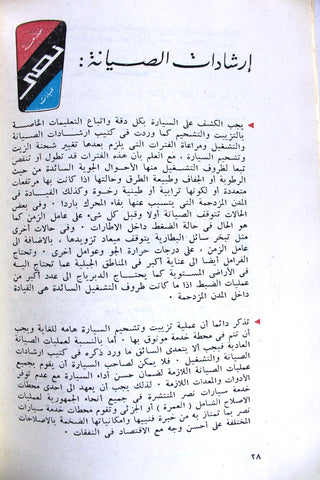 خدمة
نصر
سيارات
إرشادات الصيانة :
يجب الكشف على السيارة بكل دقة واتباع التعليمات الخاصة
بالتزييت والتشحيم كما وردت فى كتيب ارشادات الصيانة
والتشغيل ومراعاة الفترات التى يلزم بعدها تغيير شحنة الزيت
وتشحيم السيارة ، مع العلم بأن هذه الفترات قد تطول أو تنقص
تبعا لظروف التشغيل منها الأحوال الجوية السائدة من حيث
الرطوبة أو الجفاف وطبيعة الطرق وحالتها اذا كانت بها مرتفعات
متعددة أو لكونها ترابية أو طينية رخوة وكذلك القيادة فى
المدن المزدحمة التى يتسبب عنها بقاء المحرك باردا . وفى بعض
الحالات تتوقف الصيانة أولا وقبل كل شىء على عامل الزمن كما
هو الحال فى حالة الضغط داخل الاطارات . وفى حالات أخرى
مثل تبخر سائل البطارية يتوقف ميعاد تزويدها ، بالاضافة الى
عامل الزمن ، على درجات حرارة الجو وعوامل أخرى . وتحتاج
الفرامل أيضا الى عناية أكبر فى المناطق الجبلية عما تحتاج اليه
فى الأراضى المستوية كما يحتاج الدبرياج الى عدد أكبر من
عمليات الضبط اذا ما كانت ظروف التشغيل السائدة هى القيادة
داخل المدن المزدحمة .
تذكر دائما أن عملية تزييت وتشحيم السيارة هامه للغاية ويجب
أن تتم فى محطة خدمة موثوق بها . أما بالنسبة لعمليات الصيانة
العادية فيجب ألا يتعدى السائق ما ورد ذكره فى كتيب ارشادات
الصيانة والتشغيل . فلا يمكن لصاحب السيارة أن يقوم بجميع
عمليات الصيانة اللازمة لضمان حسن أداء السيارة مع عدم توفر
الأدوات والمعدات اللازمة . لذلك يجب أن يعهد الى احدى محطات
خدمة سيارات نصر المنتشرة فى جميع أنحاء الجمهورية لعمليات
الاصلاح الشامل ( العمرة ) أو الجزئى وتقوم محطات خدمة سيارات
نصر بما تمتاز به من خبرة فنييها وامكانياتها الضخمة بالاصلاحات
المختلفة على أحسن وجه مع الاقتصاد فى النفقات
٢٨